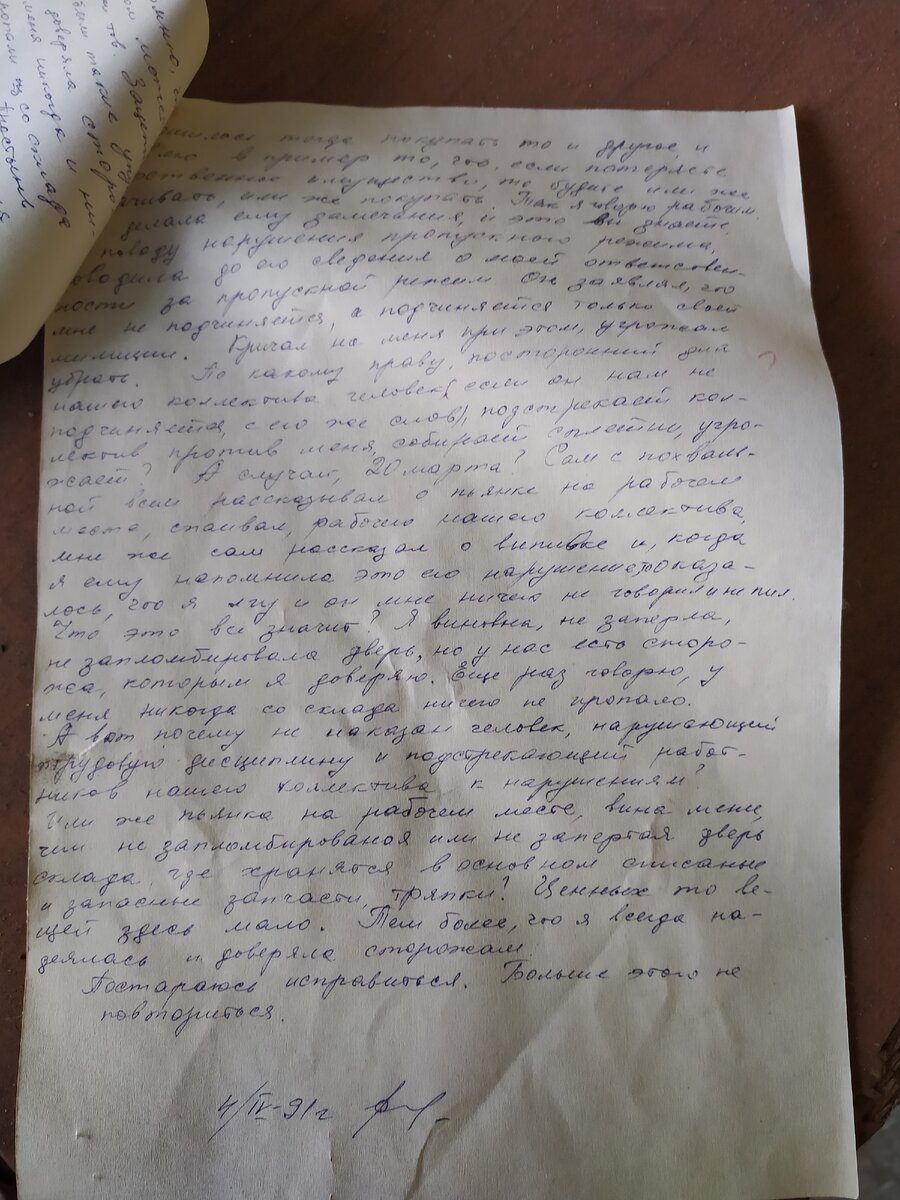 много,
ом може
тов. Зацеп
ким такие упу
доверяла сторо
меня никогда и ни-
со склада
пришлось тогда покупать то и другое, и
в пример то, что, если потеряете
имущество, то будите или же
или же покупать. Так я говорю рабочим.
делала ему замечания, и это вы знаете,
поводу нарушения пропускного режима,
доводила до его сведения о моей ответствен-
ности за пропускной режим. Он заявлял, что
мне не подчиняется, а подчиняется только своей
милиции. Кричал на меня при этом, угрожал
убрать. По какому праву, посторонний для
нашего коллектива человек (если он нам не
подчиняется, с его же слов), подстрекает кол-
лектив против меня, собирает сплетни, угро-
жает? А случай, 20 марта? Сам с похваль-
ной всем рассказывал о пьянке на рабочем
месте, спаивал, рабочего нашего коллектива,
мне же сам рассказал о выпивке и, когда
я ему напомнила это его нарушение, оказа-
лось, что я лгу и он мне ничего не говорил и не пил.
Что это все значит? Я виновна, не заперла,
не запломбировала дверь, но у нас есть сторо-
жа, которым я доверяю. Еще раз говорю, у
меня никогда со склада ничего не пропало.
А вот почему не наказан человек, нарушающий
трудовую дисциплину и подстрекающий работ-
ников нашего коллектива к нарушениям?
Или же пьянка на рабочем месте, вина мене,
чем не запломбированая или не запертая дверь
склада, где хранятся в основном списаные
и запасные запчасти, тряпки? Ценных то ве-
щей здесь мало. Тем более, что я всегда на-
деялась и доверяла сторожам.
Постараюсь исправиться. Больше этого не
повторится.
4/IV-91г